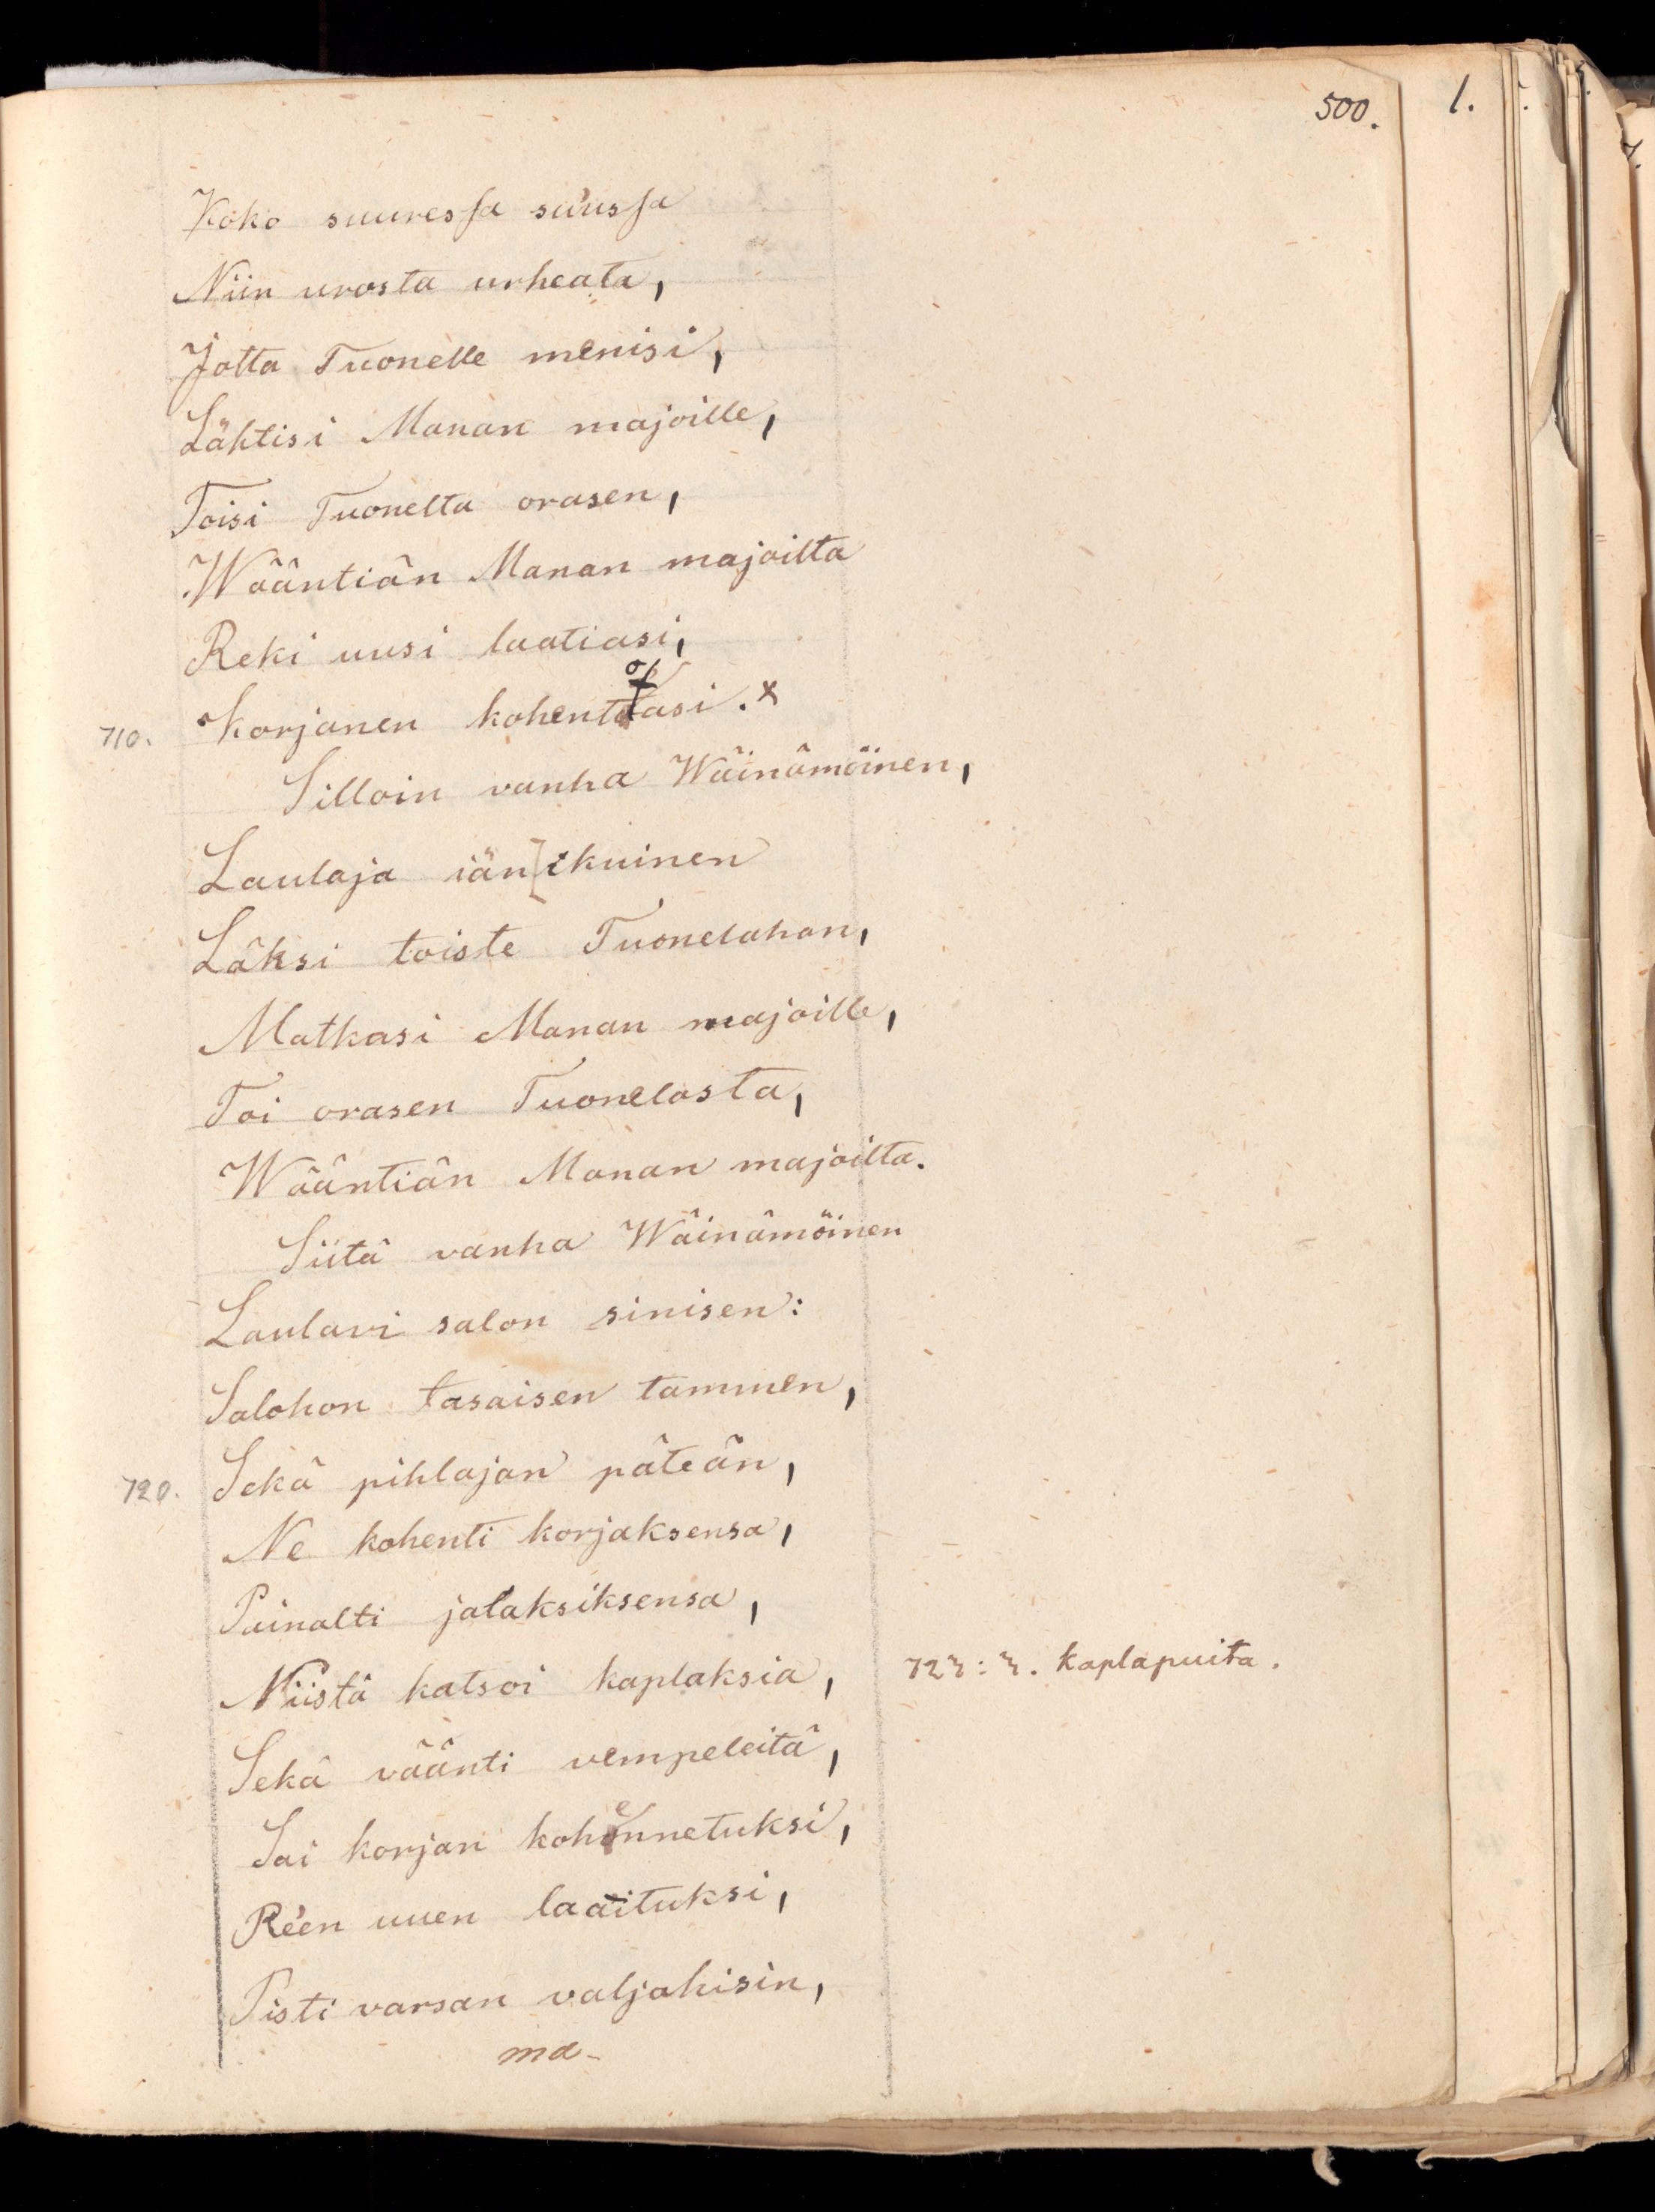 500.
1.
Koko suuressa suussa
Niin urosta urheata,
Jotta Tuonelle menisi,
Lähtisi Manan majoille,
Toisi Tuonelta orasen,
Wääntiän Manan majoilta
Reki uusi laatiasi,
710. Korjanen kohentoasi. x
Silloin vanha Wäinämöinen,
Laulaja iän[ikuinen
Läksi toiste Tuonelahan,
Matkasi Manan majoille,
Toi orasen Tuonelasta,
Wääntiän Manan majoilta.
Siitä vanha Wäinämöinen
Laulavi salon sinisen:
Salohon tasaisen tammen,
720. Sekä pihlajan päteän,
Ne kohenti korjaksensa,
Painalti jalaksiksensa,
Niistä katsoi kaplaksia, 723: 3. kaplapuita.
Sekä väänti vempeleitä,
Sai korjan kohennetuksi,
Re'en uuen laaituksi,
Pisti varsan valjahisin,
ma-